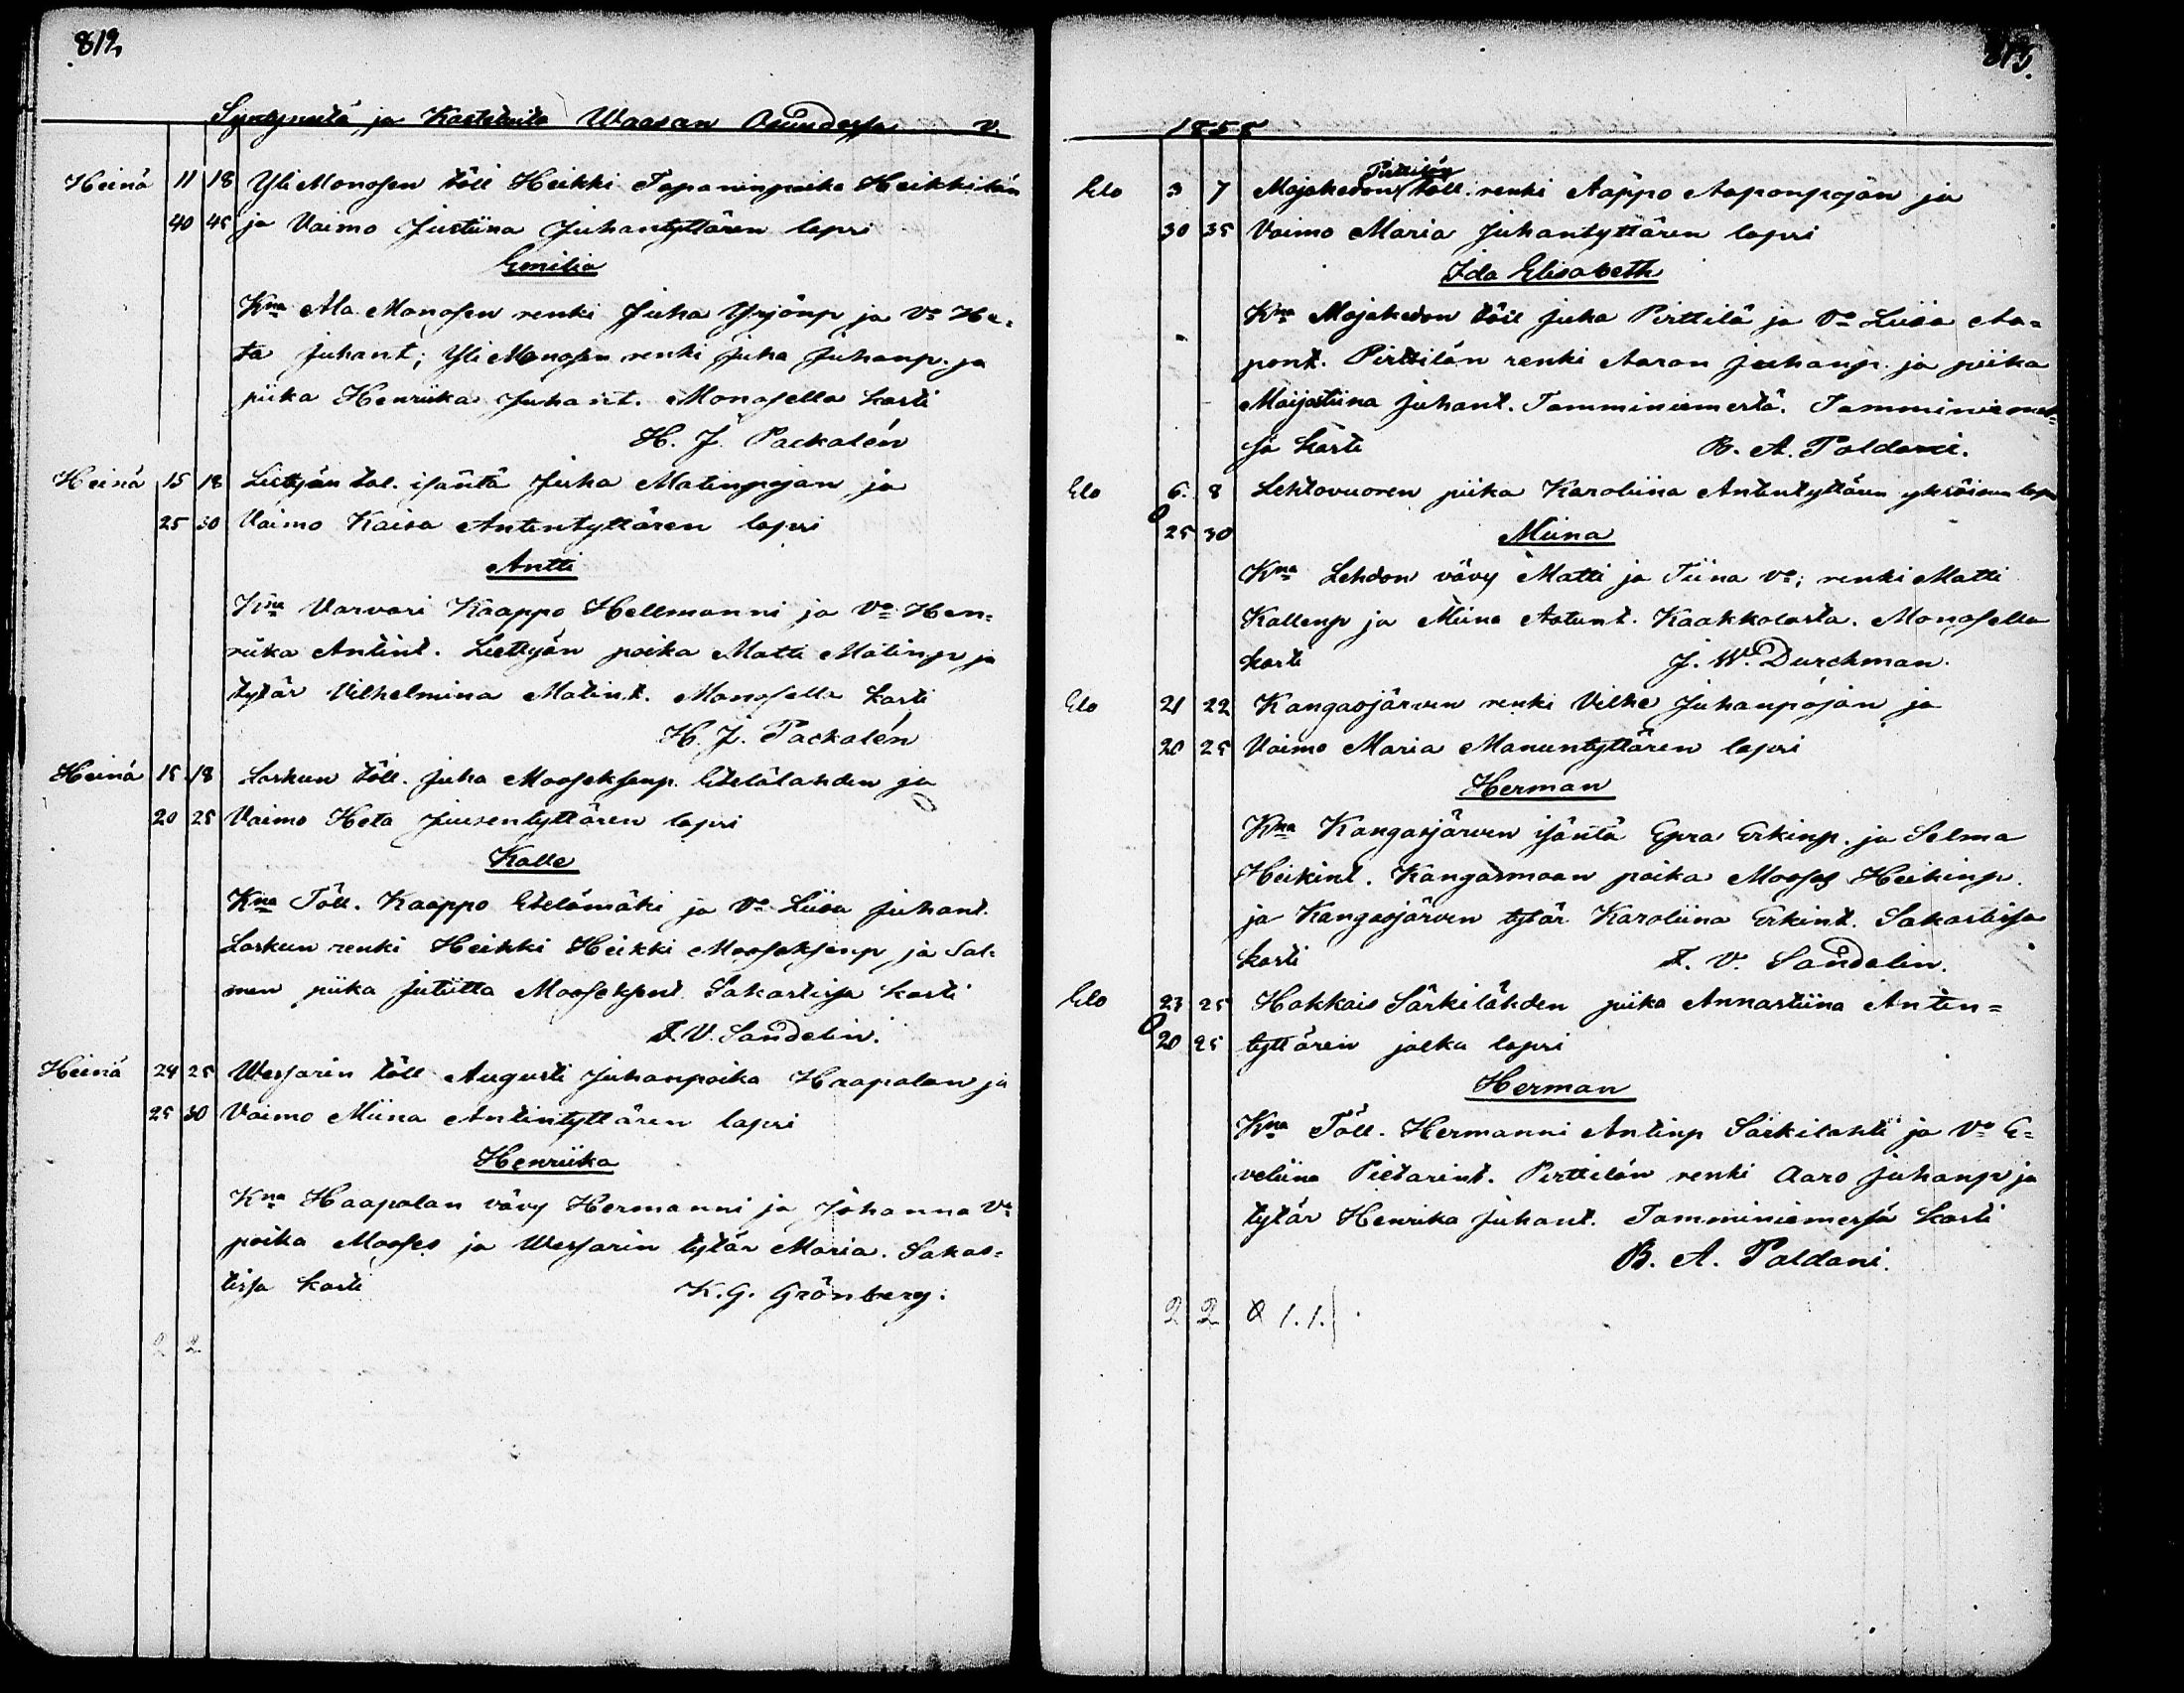 812,
Syntyneitä ja Kastetuita Waasan Osuudessa v.
Heinä 11 18 Yli Monosen töll Heikki Tapaninpoika Heikkilän
40 45 ja Vaimo Justiina Juhantyttären lapsi
Emilia
Kna Ala Monosen renki Juha Yrjönp ja Vo He-
ta Juhant; Yli Monosen renki Juha Juhanp. ja
piika Henriika Juhant. Monosella kasti
H. J. Packalén
Heinä 15 18 Liettyän tal. isäntä Juha Matinpojan ja
25 30 Vaimo Kaisa Antintyttären lapsi
Antti
Kna Varvari Kaappo Hellmanni ja Vo Hen-
riika Antint. Liettyän poika Matti Matinp ja
tytär Vilhelmina Matint. Monosella kasti
H. J. Packalén
Heinä 15 18 Laskun töll. Juha Mooseksenp. Etelälahden ja
20 25 Vaimo Heta Juusentyttären lapsi
Kalle
Kna Töll. Kaappo Etelämäki ja Vo Liisa Juhant.
Laskun renki Heikki Heikki Mooseksenp, ja Sal-
men piika Jutiitta Mooseksent. Sakastissa kasti
F. V. Sandelin.
Heinä 24 25 Wessarin töll Augusti Juhanpoika Haapalan ja
25 30 Vaimo Miina Antintyttären lapsi
Henriika
Kna Haapalan vävy Hermanni ja Johanna Vo
poika Mooses ja Wessarin tytär Maria. Sakas-
tissa kasti K. G. Grönberg.
2 2
813.
1855
Pirttilän
Elo 3 7 Majakedon töll. renki Aappo Aaponpojan ja
30 35 Vaimo Maria Juhantyttären lapsi
Ida Elisabeth
Kna Majakedon töll Juha Pirttilä ja Vo Liisa Aa-
pont. Pirttilän renki Aaron Juhanp. ja piika
Maijastiina Juhant. Tamminiemestä. Tamminiemes-
sä kasti B. A. Paldani.
Elo 6. 8 Lehtovuoren piika Karoliina Antintyttären yksöisen lapsi
25 30 Miina
Kna Lehdon vävy Matti ja Tiina vo; renki Matti
Kallenp ja Miina Aatunt. Kaakkolasta. Monosella
kasti J. W. Durchman.
Elo 21 22 Kangasjärven renki Vilhe Juhanpojan ja
20 25 Vaimo Maria Manuntyttären lapsi
Herman
Kna Kangasjärven isäntä Epra Erkinp. ja Selma
Heikint. Kangasmaan poika Mooses Heikinp.
ja Kangasjärven tytär Karoliina Erkint. Sakastissa
kasti F. V. Sandelin.
Elo 23 25 Hakkais Särkilahden piika Annastiina Antin-
20 25 tyttären jalka lapsi
Herman
Kna Töll. Hermanni Antinp Särkilahti ja Vo E-
veliina Pietarint. Pirttilän renki Aaro Juhanp ja
tytär Henrika Juhant. Tamminiemessä kasti
B. A. Paldani.
2 2 1. 1.